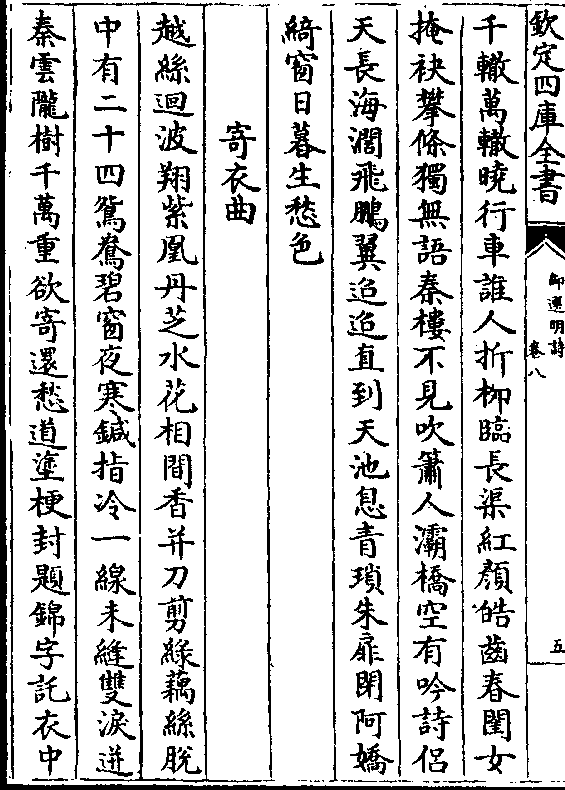 欽定四庫全書
御選明詩
卷八
五
千轍萬轍曉行車誰人折柳臨長渠紅顏皓齒春閨女
掩袂攀條獨無語秦樓不見吹簫人灞橋空有吟詩侶
天長海濶飛鵬翼迢迢直到天池息青瑣朱扉閉阿嬌
綺窗日暮生愁色
寄衣曲
越絲迴波翔紫凰丹芝水花相間香并刀剪綠藕絲脫
中有二十四鴛鴦碧窗夜寒鍼指冷一線未縫雙淚迸
秦雲隴樹千萬重欲寄還愁道塗梗封題錦字託衣中